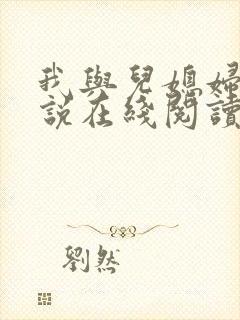 我與兒媳婦
說在綫閱讀
劉然